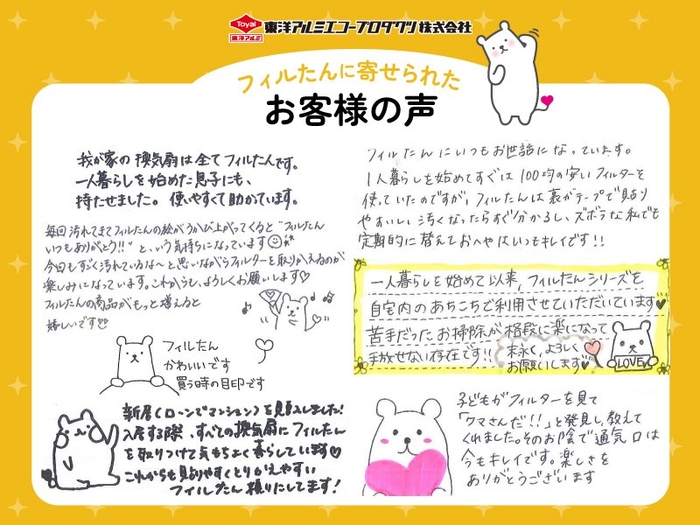 Toyal
東洋アルミ
東洋アルミエコープロダクツ株式会社
フィルたんに寄せられた
お客様の声
我が家の換気扇は全てフィルたんです。
一人暮らしを始めた息子にも、
持たせました。使いやすくて助かています。
毎回汚れてきてフィルたんの絵がうかび上がってくると"フィルたん
いつもありがとう!!"と、いう気持ちになっています
今日もすごく汚れているな〜と思いながらフィルターを取りかえるのが
楽しみになっています。これからも、よろしくお願いします♡
フィルたんの商品がもっと増えると
嬉しいです
フィルたん
かわいいです
買う時の目印です
新居(ローンでマンション)を購入しました!
入居する際、すべての換気扇にフィルたん
を取りつけて気もちよく暮らしています♥
これからも見りやすくとりかえやすい
フィルたん頼りにしてます!
フィルたんにいつもお世話になっています。
1人暮らしを始めてすぐは100均の安いフィルターを
使っていたのですが、フィルたんは裏がテープで貼り
やすいし、汚くなったらすぐ分かるし、ズボラな私でも
定期的に替えておへやはいつもキレイです!!
一人暮らしを始めて以来、フィルたんシリーズを
自宅内のあちこちで利用させていただいています♥
苦手だったお掃除が格段に楽になって
手放せない存在です!!
末永く、よろしく
お願いします♥
LOVE
子どもがフィルターを見て
「クマさんだ!!」と発見し、教えて
くれました。そのお陰で通気口は
今もキレイです。楽しさを
ありがとうございます